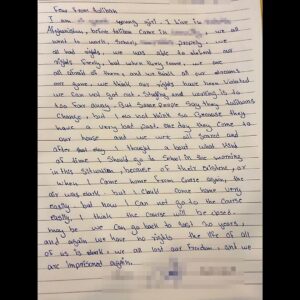 Fear from taliban
I am a young girl. I live in
Afghanistan, before taliban came in, we all
went to work, school, properly, we
all had rights, we was able to defend our
rights freely, but when they came, we are
all afraid of them, and we think all our dreams
are gone, we think our rights have been wasted
we can not get study and working is to
too far away. But some people say they talibans
change, but I do not think so because they
have a very bad past. one day they come to
our house and we were all scared and
after that day I thought a bout what kind
of time I should go to school in the morning
in this situation, because of their existent, or
when I came home from course again, the
air was dark but I could come home very
easily but now I can not go to the course
easily, I think the course will be closed.
may be we can go back to last 20 years,
and again we have no rights the life of all
of us is dark, we all lost our freedom, and we
are imprisoned again.